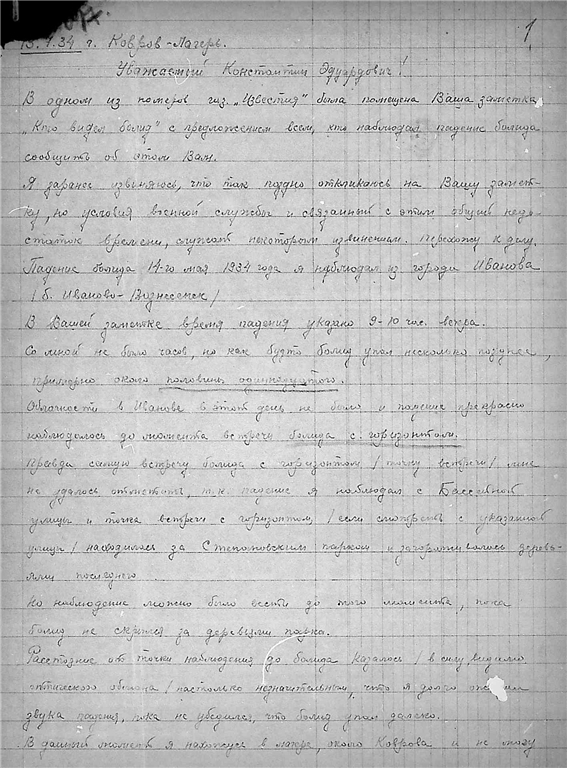 1
г. Ковров-Лагерь.
Уважаемый Константин Эдуардович!
В одном из номеров газ. „Известия" была помещена Ваша заметка
„Кто видел болид" с предложением всем, кто наблюдал падение болида
сообщить об этом Вам.
Я заранее извиняюсь, что так поздно откликаюсь на Вашу замет-
ку, но условия военной службы и связанный с этим общий недо-
статок времени, служат некоторым извинением. Перехожу к делу.
Падение болида 14-го мая 1934 года я наблюдал из города Иванова
/б. Иваново-Вознесенск/
В Вашей заметке время падения указано 9-10 час. вечера.
Со мной не было часов, но как будто болид упал несколько позднее,
примерно около половины одиннадцатого.
Облачности в Иванове в этот день не было и падение прекрасно
наблюдалось до момента встречи болида с горизонтом.
Правда самую встречу болида с горизонтом /точку встречи/ мне
не удалось отметить, т.к. падение я наблюдал с
улицы и точка встречи с горизонтом, /если смотреть с указанной
улицы/ находилась за Степановским парком и загораживалась деревь-
ями последнего.
Но наблюдение можно было вести до того момента, пока
болид не скрылся за деревьями парка.
Расстояние от точки наблюдения до болида казалось /в силу видимо
оптического обмана/ настолько незначительным, что я долго
звука падения, пока не убедился, что болид упал далеко.
В данный момент я нахожусь в лагере, около Коврова и не могу